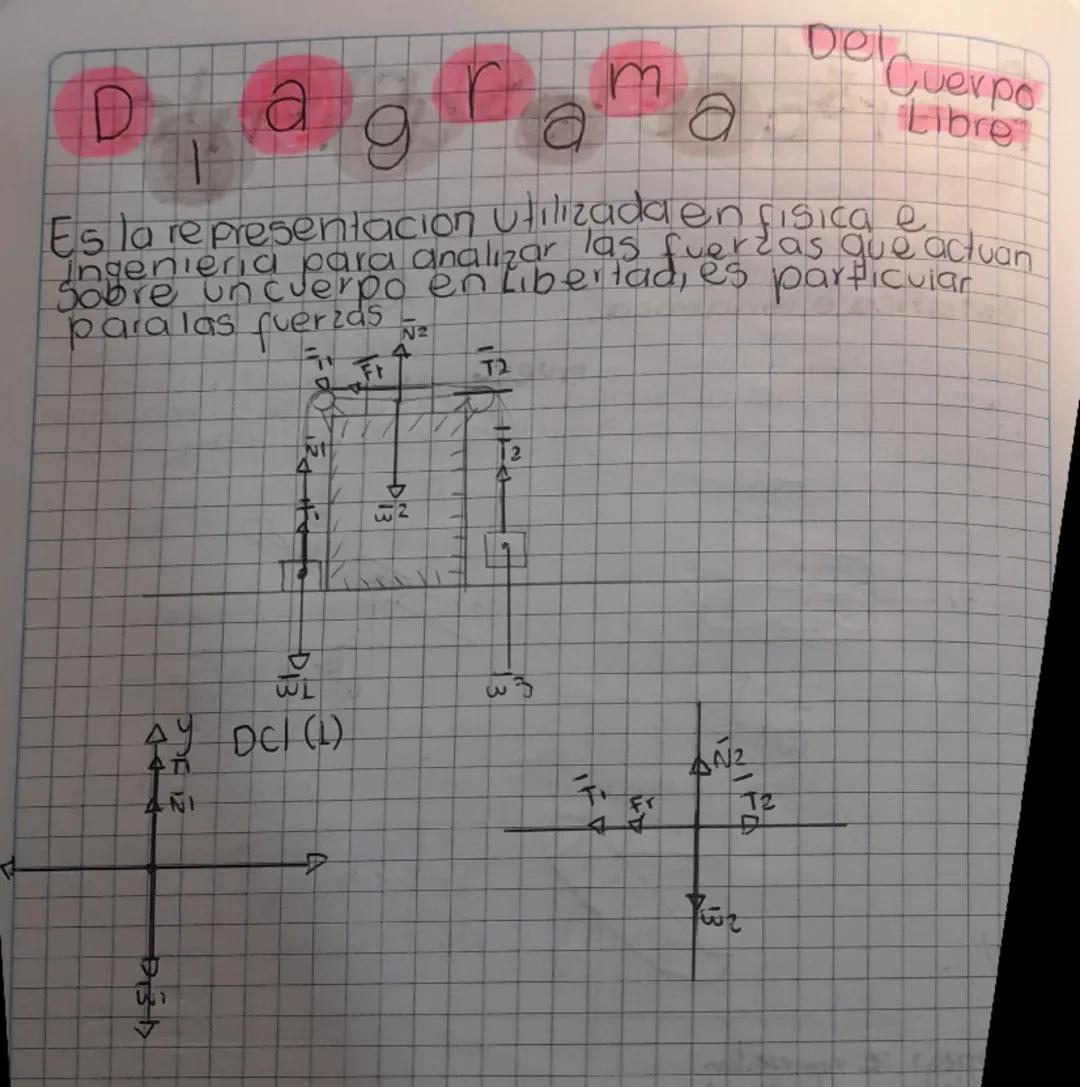 Diagrama Del
Cuerpo
Libre
Es la representacion utilizada en fisica e
ingenieria para analizar las fuerzas que actuan
sobre un cuerpo en Libertad, es particular
para las fuerzas
N2
T1 Fr T2
N1 T2
T1 W2
W1 W3
y DCl (1)
T1
N1
W1
N2
T1 Fr T2
W2